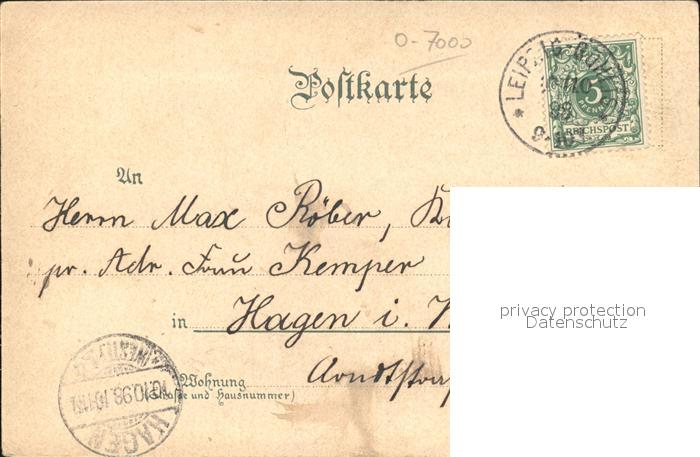 0-7000
Postkarte
LEIPZIG
98
5
PFENNIG
REICHSPOST
An
Herrn Max Röber,
pr. Adr. Frau Kemper
in Hagen i. W
Wohnung
(Straße und Hausnummer)
Arndtstraß
HAGEN
(WESTF.)
10.10.98
privacy protection
Datenschutz